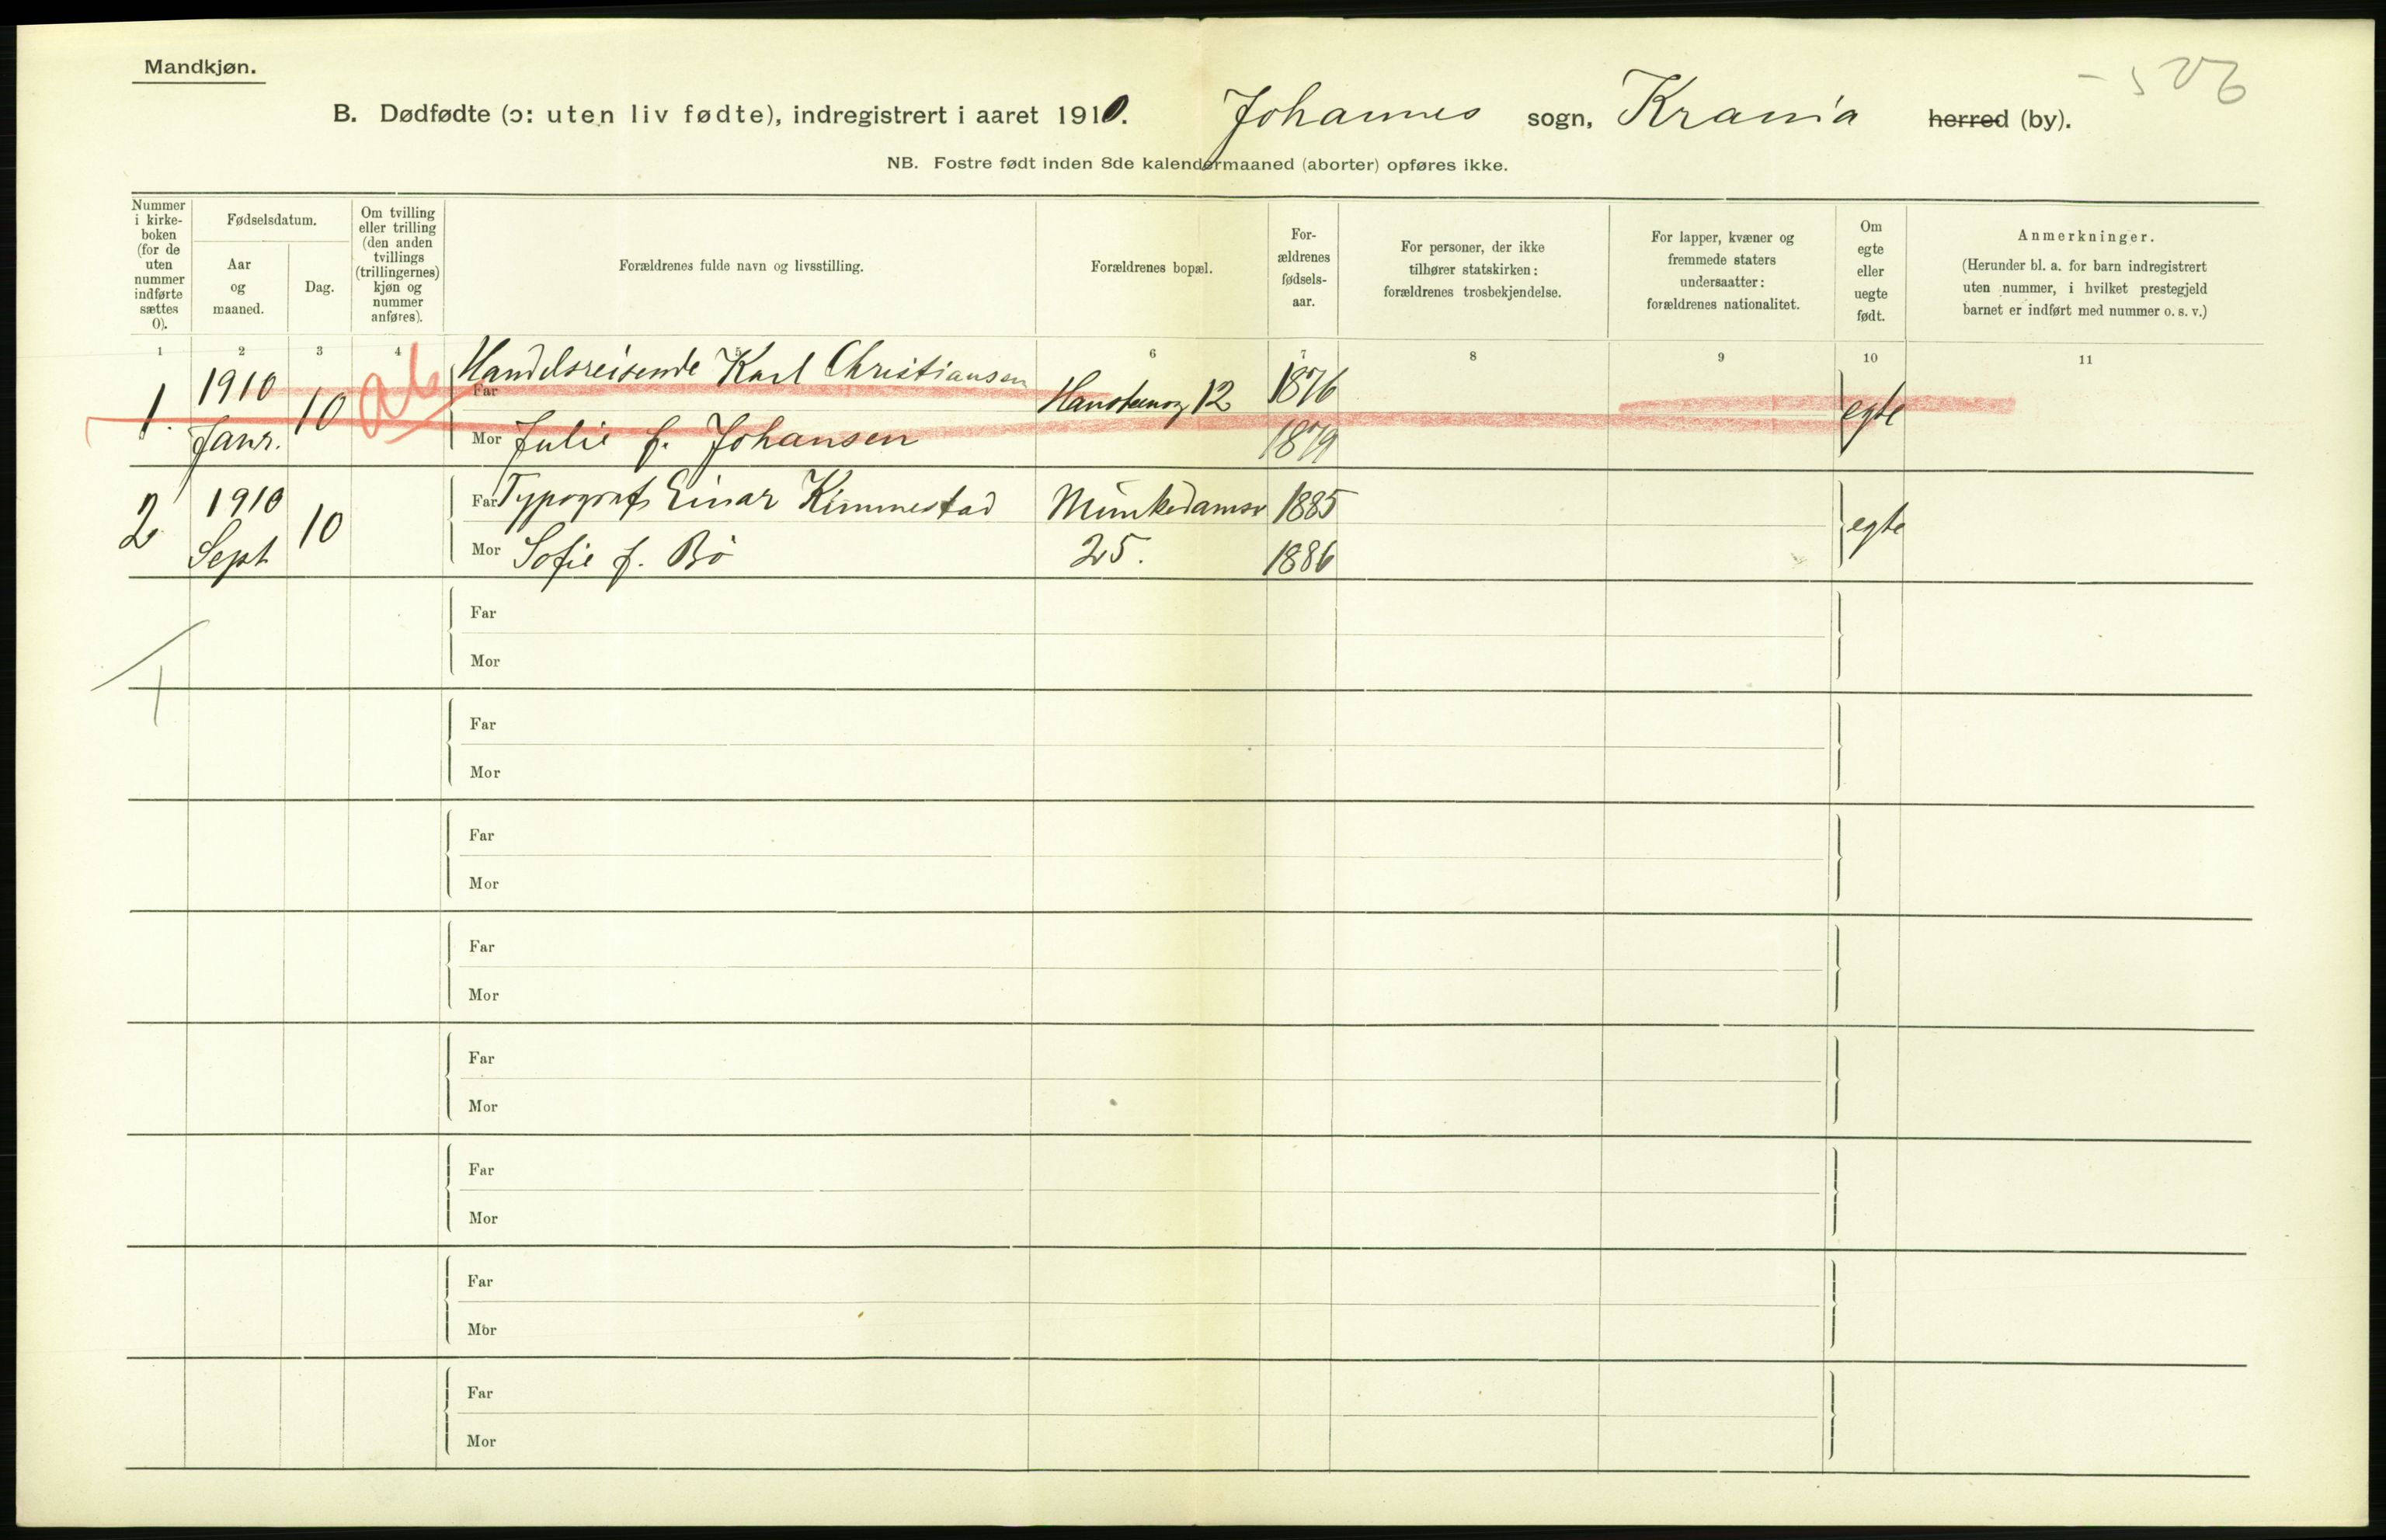 Mandkjøn.
- 526
B. Dødfødte (ɔ: uten liv fødte), indregistrert i aaret 1910. Johannes sogn, Krania herred (by).
NB. Fostre født inden 8de kalendermaaned (aborter) opføres ikke.
Nummer i kirke-
boken
(for de
uten
nummer
indførte
sættes
0).
Fødselsdatum.
Aar
og
maaned.
Dag.
Om tvilling
eller trilling
(den anden
tvillings
(trillingernes)
kjøn og
nummer
anføres).
Forældrenes fulde navn og livsstilling.
Forældrenes bopæl.
For-
ældrenes
fødsels-
aar.
For personer, der ikke
tilhører statskirken:
forældrenes trosbekjendelse.
For lapper, kvæner og
fremmede staters
undersaatter:
forældrenes nationalitet.
Om
egte
eller
uegte
født.
Anmerkninger.
(Herunder bl. a. for barn indregistrert
uten nummer, i hvilket prestegjeld
barnet er indført med nummer o. s. v.)
1 2 3 4 5 6 7 8 9 10 11
1. 1910 Janr. 10 ab
Far Handelsreisende Karl Christiansen Hansteensg 12 1876 egte
Mor Julie f. Johansen 1879
2 1910 Sept 10
Far Typograf Einar Kimmestad Munkedamsv 1885 egte
Mor Sofie f. Bö 25. 1886
Far
Mor
Far
Mor
Far
Mor
Far
Mor
Far
Mor
Far
Mor
Far
Mor
Far
Mor